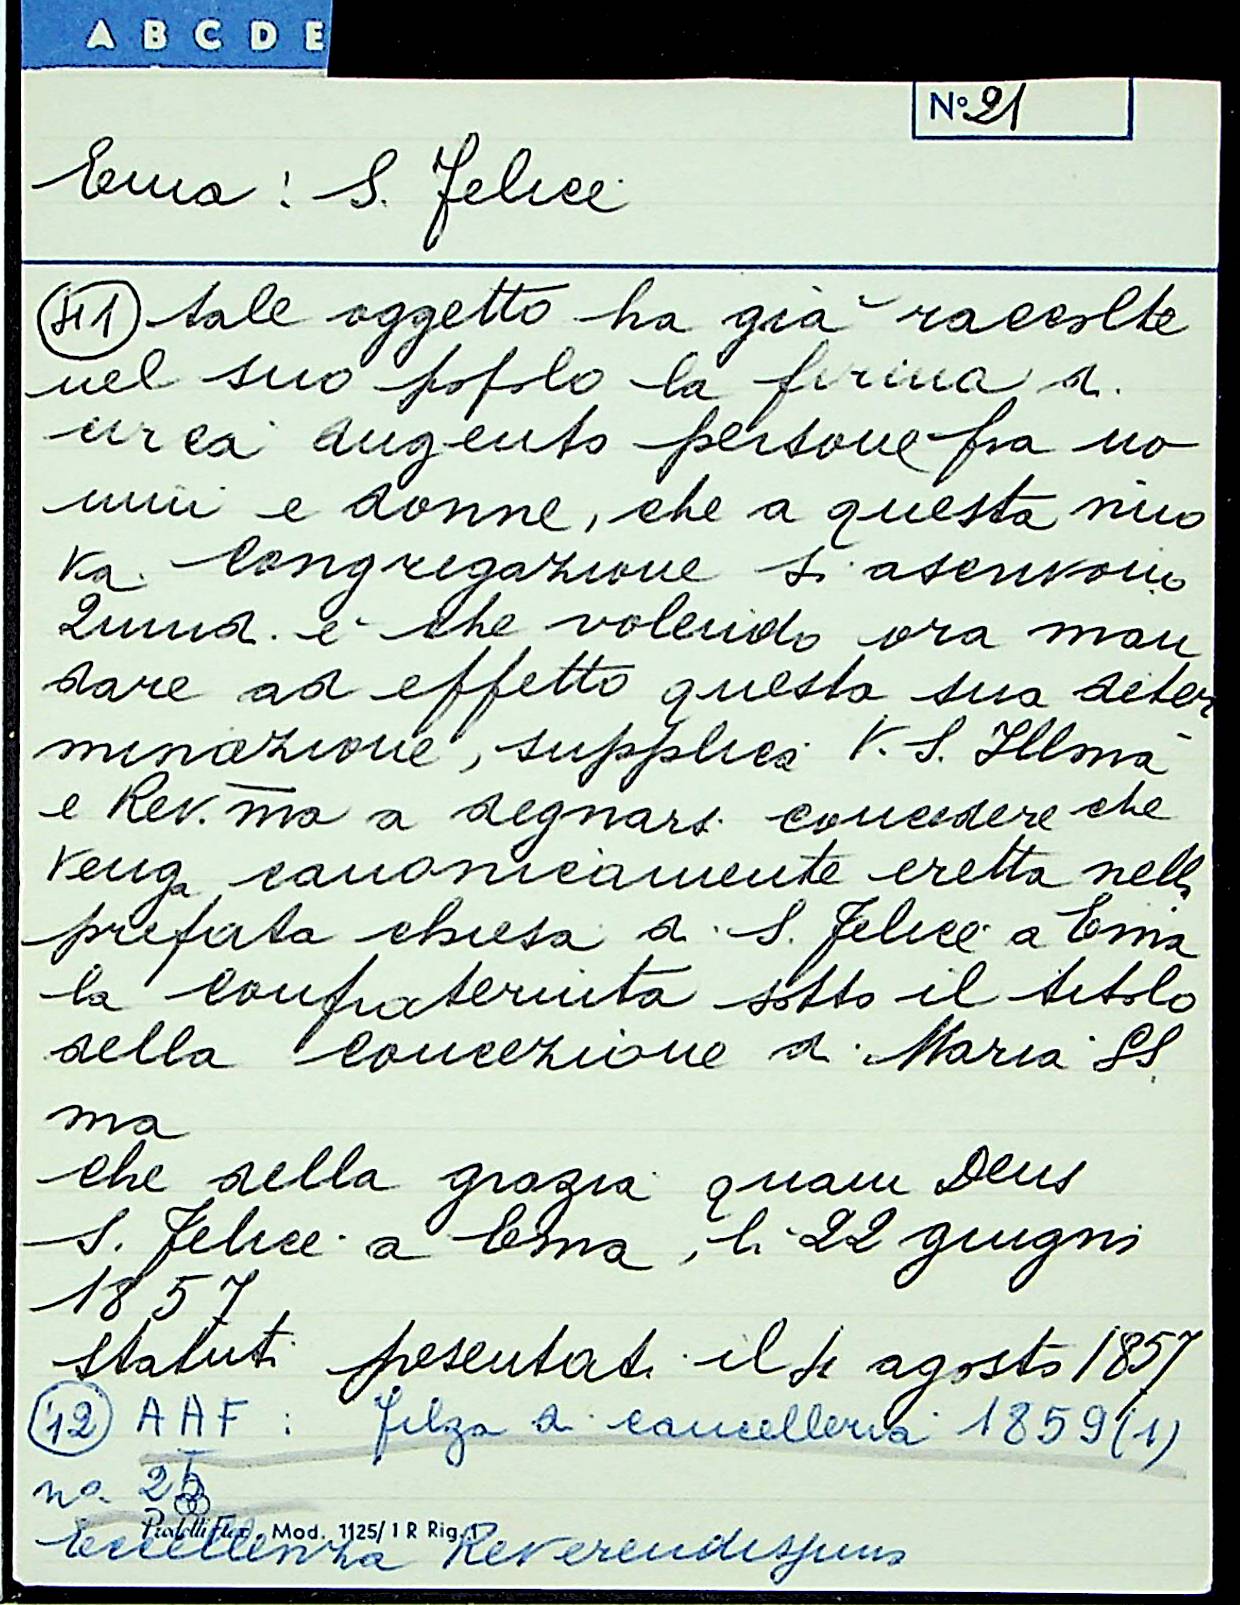 A B C D E
N° 21
Ema: S. Felice
41 tale oggetto ha già raccolte
nel suo popolo la firma di
circa dugento persone fra uo
mini e donne, che a questa nuo
va Congregazione si ascrivono
Quindi è che volendo ora man
dare ad effetto questa sua deter
minazione, supplica V. S. Illma
e Rev.ma a degnarsi concedere che
venga canonicamente eretta nella
prefata chiesa di S. Felice a Ema
la Confraternita sotto il titolo
della Concezione di Maria SS.
ma
che della grazia quam Deus
S. Felice a Ema, li 22 giugno
1857
statuti presentati il 4 agosto 1857
42 AAF: Filza di cancelleria 1859(1)
no. 25
Mod. 1125/1 R Rig. 1
Eccellenza Reverendissima